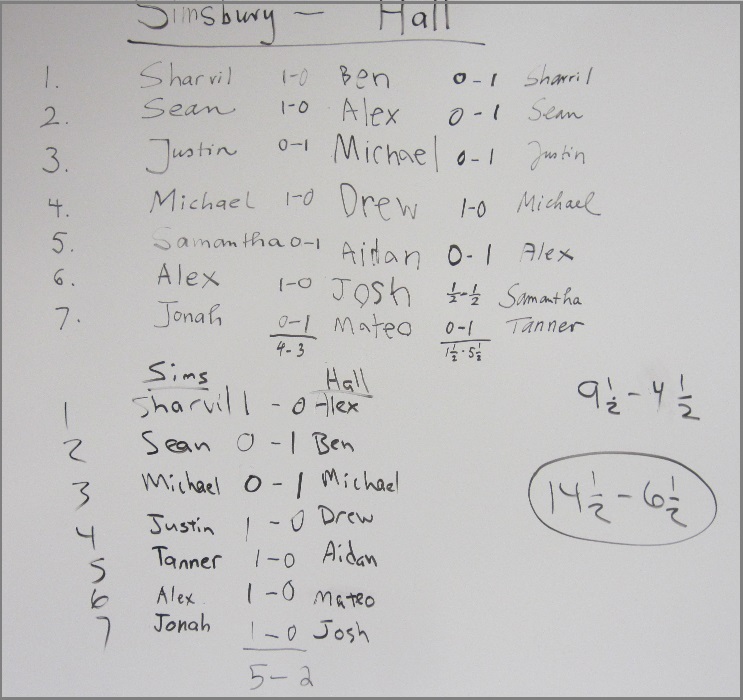 Simsbury - Hall
1. Sharvil 1-0 Ben 0-1 Sharvil
2. Sean 1-0 Alex 0-1 Sean
3. Justin 0-1 Michael 0-1 Justin
4. Michael 1-0 Drew 1-0 Michael
5. Samantha 0-1 Aidan 0-1 Alex
6. Alex 1-0 Josh ½-½ Samantha
7. Jonah 0-1 Mateo 0-1 Tanner
4-3 1½-5½
Sims Hall
1 Sharvil 1-0 Alex
9½-4½
2 Sean 0-1 Ben
3 Michael 0-1 Michael
14½-6½
4 Justin 1-0 Drew
5 Tanner 1-0 Aidan
6 Alex 1-0 Mateo
7 Jonah 1-0 Josh
5-2